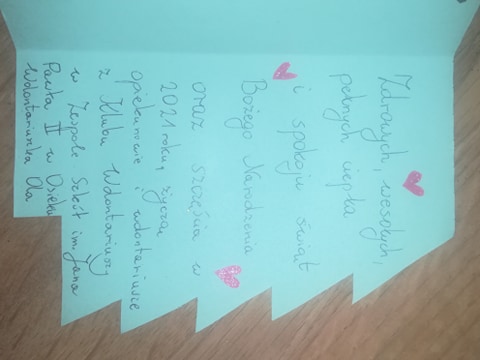 Zdrowych, wesołych,
pełnych ciepła
i spokoju świąt
Bożego Narodzenia
oraz szczęścia w
2021 roku, życzą
opiekunowie i wolontariusze
z Klubu Wolontariuszy
w Zespole Szkół im. Jana
Pawła II w Osieku
Wolontariuszka Ola